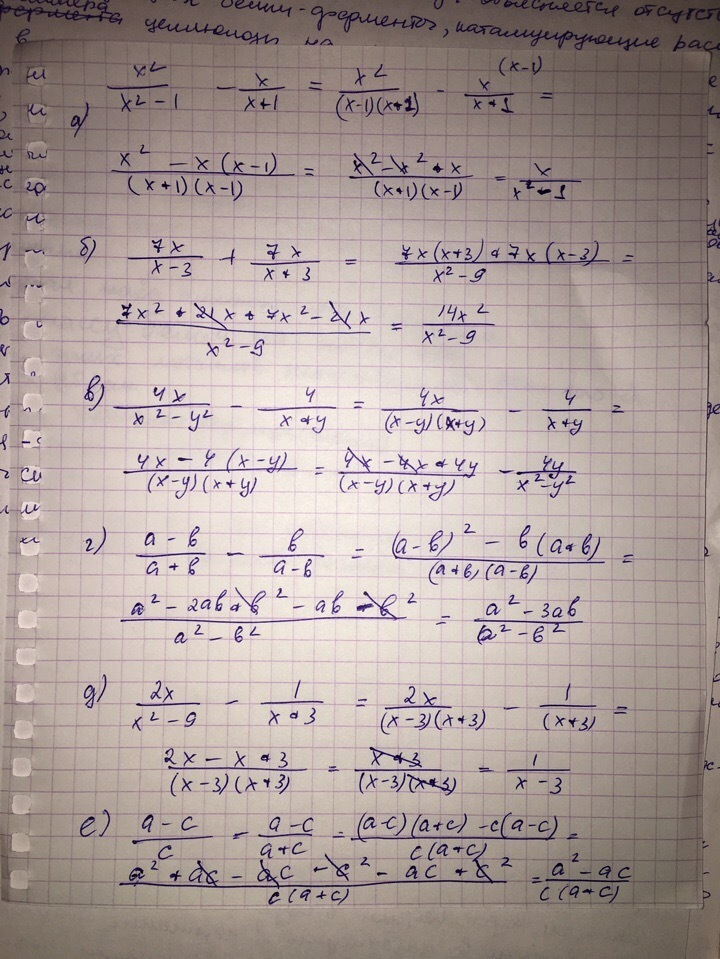 объясняется отсутст
фермента целлюлозы на
ферменты, катализирующие рас
(x-1)
x²/(x²-1) - x/(x+1) = x²/((x-1)(x+1)) - x/(x+1) =
а)
(x² - x(x-1))/((x+1)(x-1)) = (x²-x²+x)/((x+1)(x-1)) = x/(x²-1)
б) 7x/(x-3) + 7x/(x+3) = (7x(x+3)+7x(x-3))/(x²-9) =
(7x²+21x+7x²-21x)/(x²-9) = 14x²/(x²-9)
в) 4x/(x²-y²) - 4/(x+y) = 4x/((x-y)(x+y)) - 4/(x+y) =
(4x-4(x-y))/((x-y)(x+y)) = (4x-4x+4y)/((x-y)(x+y)) - 4y/(x²-y²)
г) (a-в)/(a+в) - в/(a-в) = ((a-в)² - в(a+в))/((a+в)(a-в)) =
(a²-2aв+в²-aв-в²)/(a²-в²) = (a²-3aв)/(a²-в²)
д) 2x/(x²-9) - 1/(x+3) = 2x/((x-3)(x+3)) - 1/(x+3) =
(2x-x+3)/((x-3)(x+3)) = (x+3)/((x-3)(x+3)) = 1/(x-3)
е) (a-c)/c - (a-c)/(a+c) = ((a-c)(a+c)-c(a-c))/(c(a+c)) =
(a²+ac-ac-c²-ac+c²)/(c(a+c)) = (a²-ac)/(c(a+c))